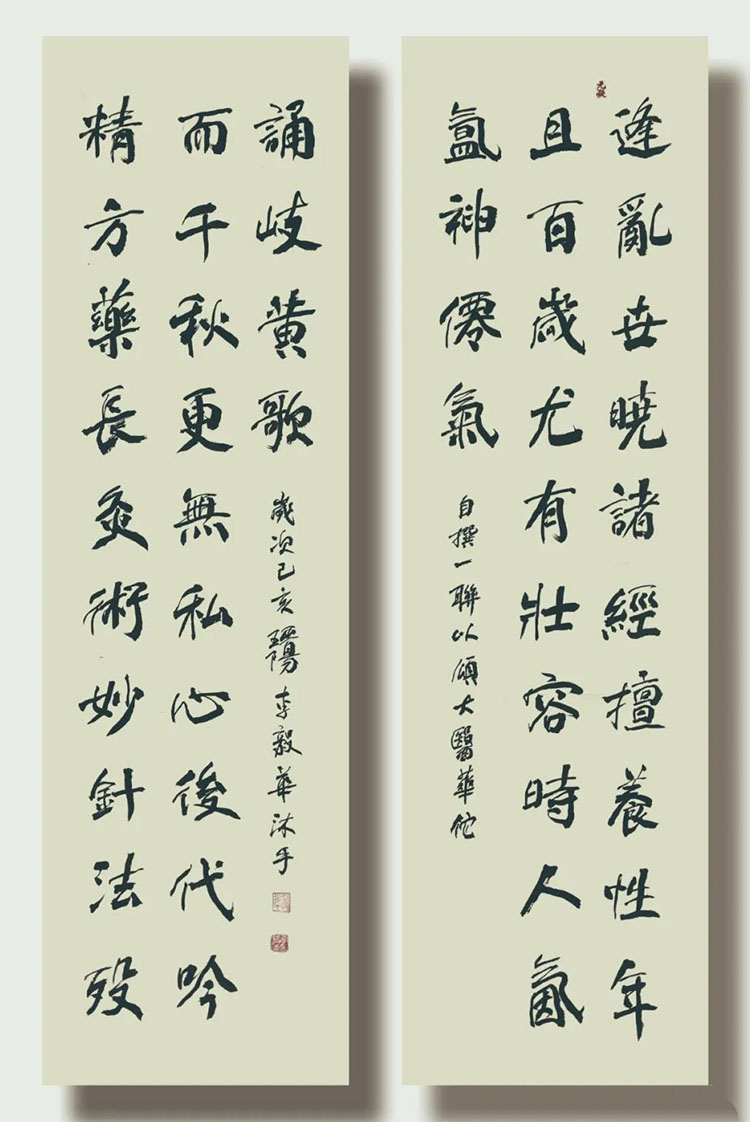 逢亂世曉諸經擅養性年
且百歲尤有壯容時人氤
氳神僊氣
自撰一聯以頌大醫華佗
精方藥長灸術妙針法歿
而千秋更無私心後代吟
誦岐黄歌
歲次己亥陽李毅華沐手